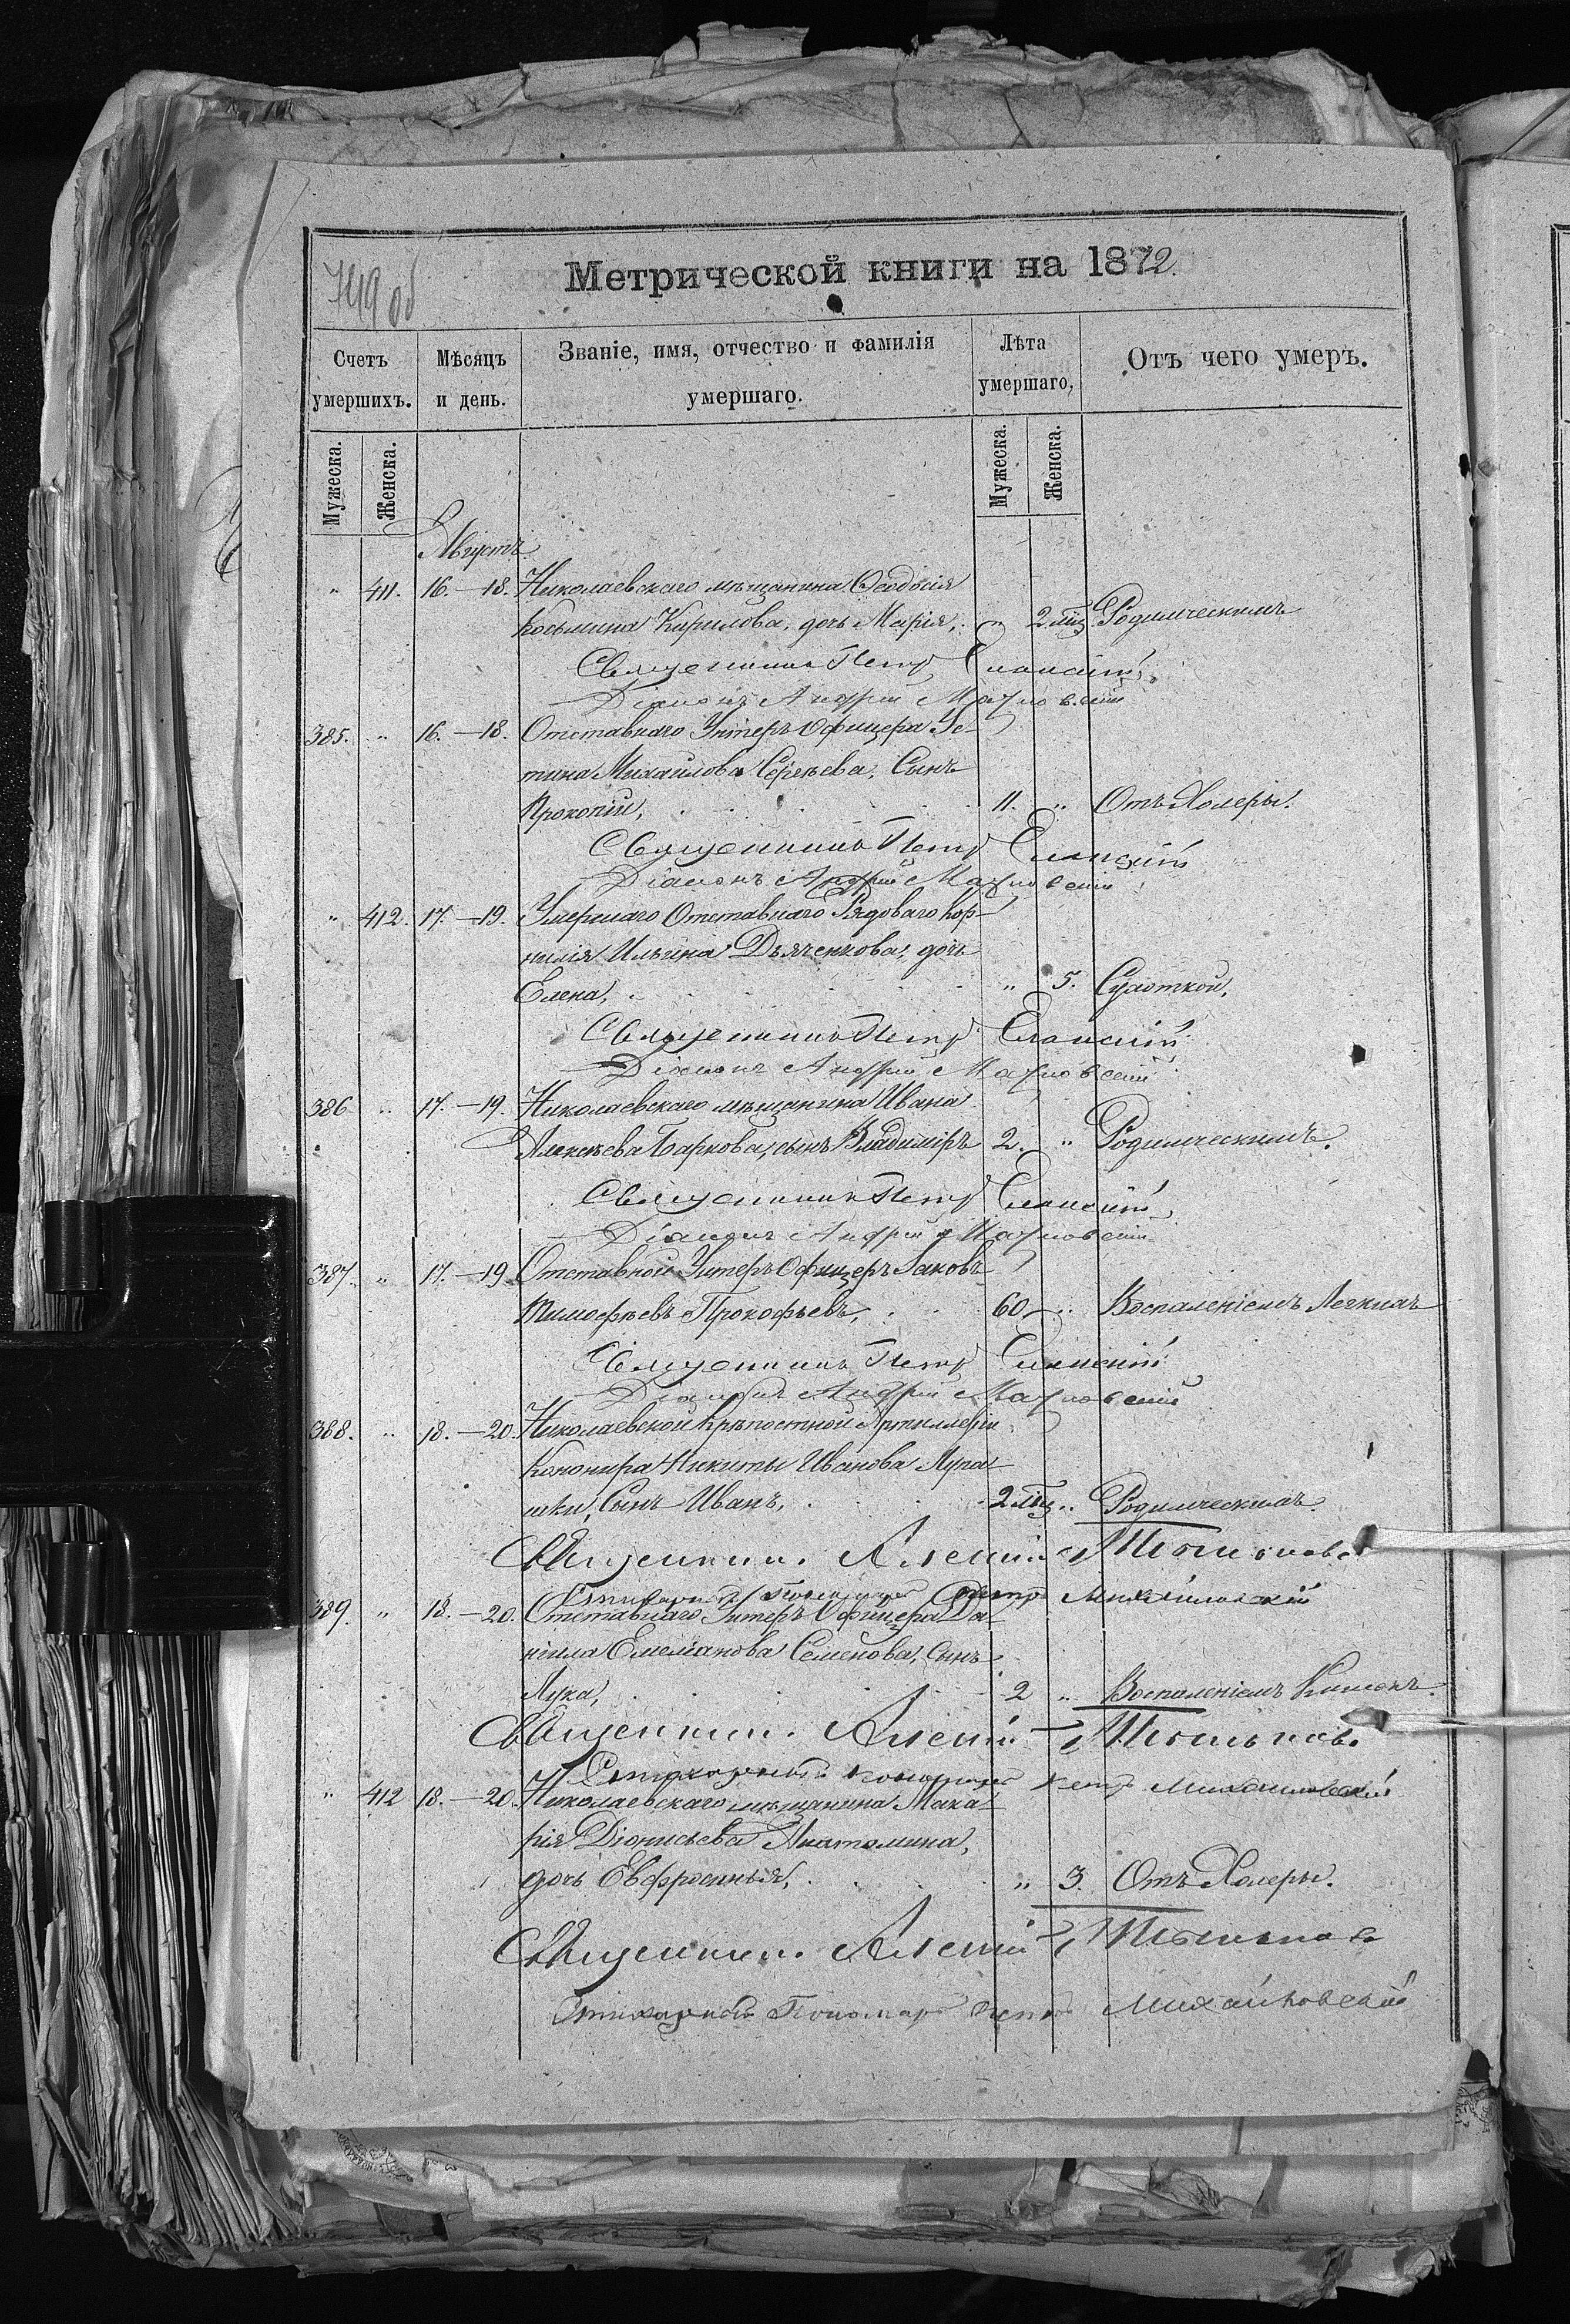 749 об
Метрической книги на 1872.
Счетъ умершихъ.
Мѣсяцъ и день.
Званіе, имя, отчество и фамилія умершаго.
Лѣта умершаго,
Отъ чего умеръ.
Мужеска.
Женска.
Мужеска.
Женска.
Августъ
" 411. 16.–18. Николаевскаго мѣщанина Ѳеодосія
Косьмина Кирилова, дочь Марія, " 2 мц Родимическимъ
Священникъ Петръ Еланскій
Діаконъ Андрей
385. " 16.–18. Отставнаго Унтеръ Офицера Ус-
тина Михайлова Сергѣева, Сынъ
Прокопій, 11. " Отъ Холеры.
Священникъ Петръ Еланскій
Діаконъ Андрей
" 412. 17.–19. Умершаго Отставнаго Рядоваго Кор-
нилія Ильина Дьяченкова, дочь
Елена, " 5. Сухоткой,
Священникъ Петръ Еланскій
Діаконъ Андрей
386 " 17.–19. Николаевскаго мѣщанина Ивана
Алексѣева Баркова, сынъ Владиміръ 2. " Родимическимъ.
Священникъ Петръ Еланскій
Діаконъ Андрей
387. " 17.–19. Отставной Унтеръ Офицеръ Іаковъ
Тимофѣевъ Прокофьевъ, 60 " Воспаленіемъ Легкихъ
Священникъ Петръ Еланскій
Діаконъ Андрей
388. " 18.–20. Николаевской Крѣпостной Артиллеріи
Канонира Никиты Иванова Лука-
шки, Сынъ Иванъ, 2 мц " Родимическимъ
Священник. Алексій
Стихарный Пономарь Петръ Михайловскій
389. " 18.–20. Отставнаго Унтеръ Офицера Да-
ніила Емеліанова Семенова, Сынъ
Лука, 2 " Воспаленіемъ Кишекъ.
Священник. Алексій
Стихарный Пономарь Петръ Михайловскій
" 412 18.–20. Николаевскаго мѣщанина Мака-
рія Діонисьева
дочь Евфросинья, " 3. Отъ Холеры.
Священник. Алексій
Стихарный Пономарь Петръ Михайловскій